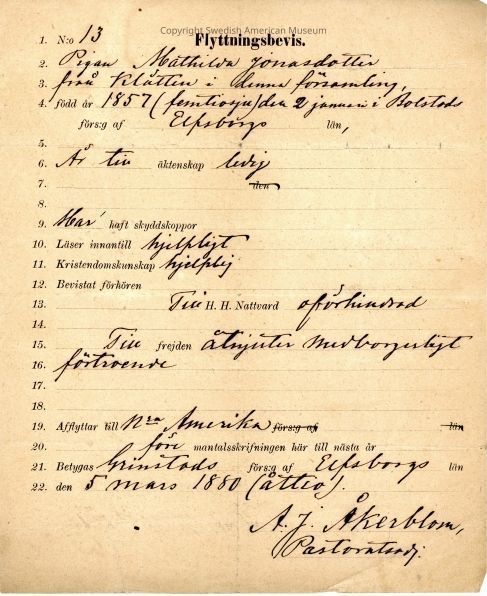 Copyright Swedish American Museum
Flyttningsbevis.
1. N:o 13
2. Pigan Mathilda Jonasdotter
3. från Klåtten i denna församling,
4. född år 1857 (femtiosju) den 2 januari i Bolstads
förs:g af Elfsborgs län,
5.
6. Är till äktenskap ledig
7. den
8.
9. Har haft skyddskoppor
10. Läser innantill hjelpligt
11. Kristendomskunskap hjelplig
12. Bevistat förhören
13. Till H. H. Nattvard oförhindrad
14.
15. Till frejden åtnjuter medborgerligt
16. förtroende
17.
18.
19. Afflyttar till Nra Amerika förs:g af län
20. före mantalsskrifningen här till nästa år
21. Betygas Grinstads förs:g af Elfsborgs län
22. den 5 mars 1880 (åttio).
A. J. Åkerblom,
Pastoratsadj.